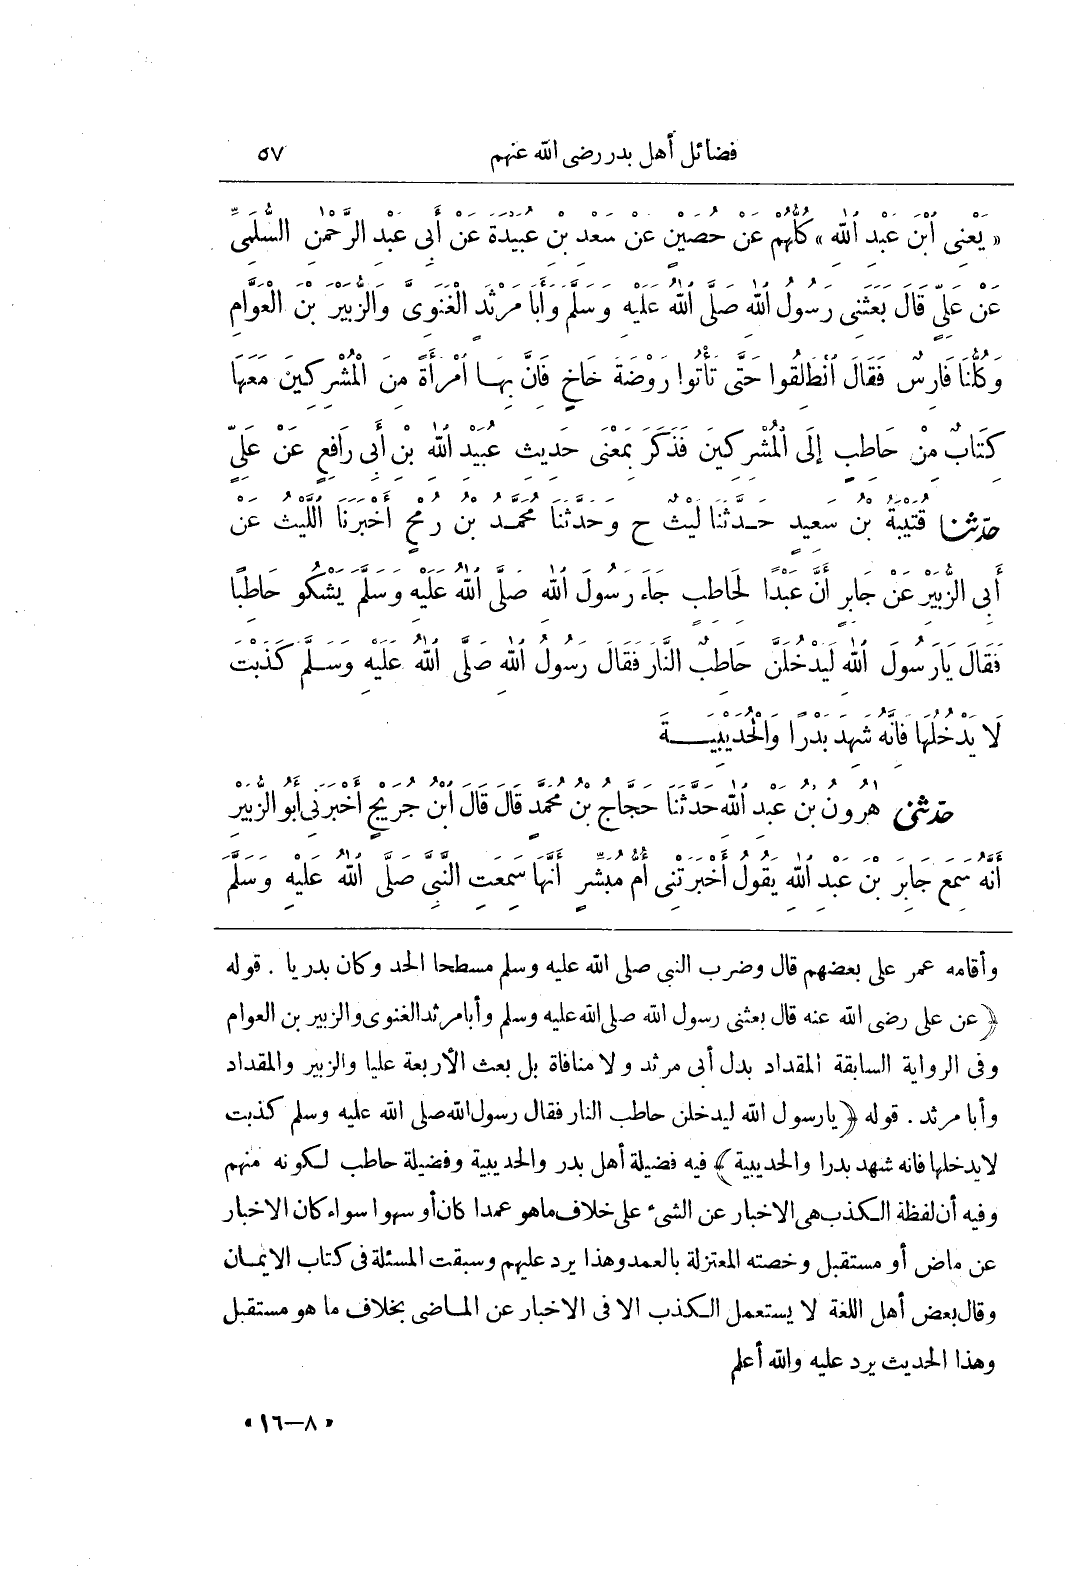 فضائل أهل بدر رضى الله عنهم ٥٧
« يَعْنِى ٱبْنَ عَبْدِ ٱللّٰهِ » كُلُّهُمْ عَنْ حُصَيْنٍ عَنْ سَعْدِ بْنِ عُبَيْدَةَ عَنْ أَبِى عَبْدِ الرَّحْمٰنِ السُّلَمِىِّ
عَنْ عَلِىٍّ قَالَ بَعَثَنِى رَسُولُ ٱللّٰهِ صَلَّى ٱللّٰهُ عَلَيْهِ وَسَلَّمَ وَأَبَا مَرْثَدٍ الْغَنَوِىَّ وَالزُّبَيْرَ بْنَ الْعَوَّامِ
وَكُلُّنَا فَارِسٌ فَقَالَ ٱنْطَلِقُوا حَتَّى تَأْتُوا رَوْضَةَ خَاخٍ فَانَّ بِهَا ٱمْرَأَةً مِنَ الْمُشْرِكِينَ مَعَهَا
كِتَابٌ مِنْ حَاطِبٍ إِلَى الْمُشْرِكِينَ فَذَكَرَ بِمَعْنَى حَدِيثِ عُبَيْدِ ٱللّٰهِ بْنِ أَبِى رَافِعٍ عَنْ عَلِىٍّ
حدّثنا قُتَيْبَةُ بْنُ سَعِيدٍ حَدَّثَنَا لَيْثٌ ح وَحَدَّثَنَا مُحَمَّدُ بْنُ رُمْحٍ أَخْبَرَنَا اللَّيْثُ عَنْ
أَبِى الزُّبَيْرِ عَنْ جَابِرٍ أَنَّ عَبْدًا لِحَاطِبٍ جَاءَ رَسُولَ ٱللّٰهِ صَلَّى ٱللّٰهُ عَلَيْهِ وَسَلَّمَ يَشْكُو حَاطِبًا
فَقَالَ يَارَسُولَ ٱللّٰهِ لَيَدْخُلَنَّ حَاطِبٌ النَّارَ فَقَالَ رَسُولُ ٱللّٰهِ صَلَّى ٱللّٰهُ عَلَيْهِ وَسَلَّمَ كَذَبْتَ
لَا يَدْخُلُهَا فَانَّهُ شَهِدَ بَدْرًا وَالْحُدَيْبِيَةَ
حدّثنى هٰرُونُ بْنُ عَبْدِ ٱللّٰهِ حَدَّثَنَا حَجَّاجُ بْنُ مُحَمَّدٍ قَالَ قَالَ ٱبْنُ جُرَيْجٍ أَخْبَرَنِى أَبُو الزُّبَيْرِ
أَنَّهُ سَمِعَ جَابِرَ بْنَ عَبْدِ ٱللّٰهِ يَقُولُ أَخْبَرَتْنِى أُمُّ مُبَشِّرٍ أَنَّهَا سَمِعَتِ النَّبِىَّ صَلَّى ٱللّٰهُ عَلَيْهِ وَسَلَّمَ
وأقامه عمر على بعضهم قال وضرب النبى صلى الله عليه وسلم مسطحا الحد وكان بدريا . قوله
﴿ عن على رضى الله عنه قال بعثنى رسول الله صلى الله عليه وسلم وأبا مرثد الغنوى والزبير بن العوام
وفى الرواية السابقة المقداد بدل أبى مرثد ولا منافاة بل بعث الأربعة عليا والزبير والمقداد
وأبا مرثد . قوله ﴿ يارسول الله ليدخلن حاطب النار فقال رسول الله صلى الله عليه وسلم كذبت
لا يدخلها فانه شهد بدرا والحديبية ﴾ فيه فضيلة أهل بدر والحديبية وفضيلة حاطب لكونه منهم
وفيه أن لفظة الكذب هى الاخبار عن الشىء على خلاف ماهو عمدا كان أو سهوا سواء كان الاخبار
عن ماض أو مستقبل وخصته المعتزلة بالعمد وهذا يرد عليهم وسبقت المسئلة فى كتاب الايمان
وقال بعض أهل اللغة لا يستعمل الكذب الا فى الاخبار عن الماضى بخلاف ما هو مستقبل
وهذا الحديث يرد عليه والله أعلم
«٨ – ١٦»